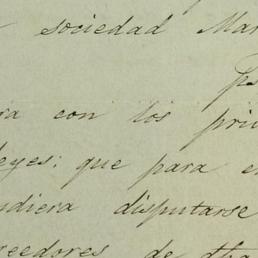 sociedad Mar
ps
ra con los pri
leyes: que para e
udiera disputarse
reedores de dha